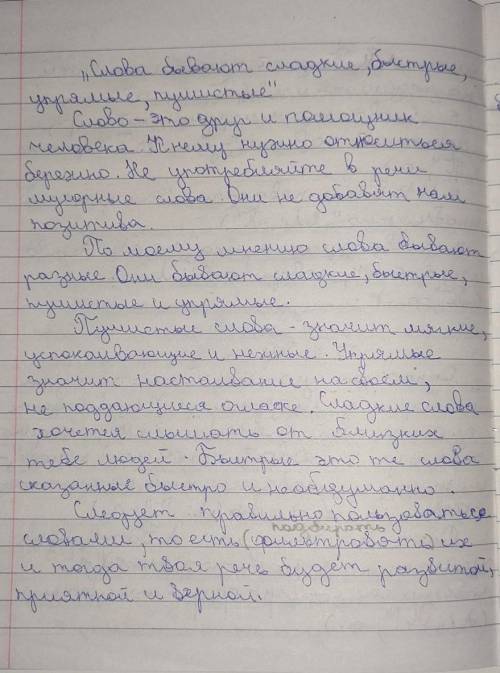 „Слова бывают сладкие, быстрые,
упрямые, пушистые"
Слово - это друг и помощник
человека. К нему нужно относиться
бережно. Не употребляйте в речи
мусорные слова. Они не добавят нам
позитива.
По моему мнению слова бывают
разные. Они бывают сладкие, быстрые,
пушистые и упрямые.
Пушистые слова - значит мягкие,
успокаивающие и нежные. Упрямые
значит настаивание на своём,
не поддающиеся огласке. Сладкие слова
хочется слышать от близких
тебе людей. Быстрые это те слова
сказанные быстро и необдуманно.
Следует правильно пользоваться
подбирать
словами, то есть (фильтровать) их
и тогда твоя речь будет развитой,
приятной и верной.